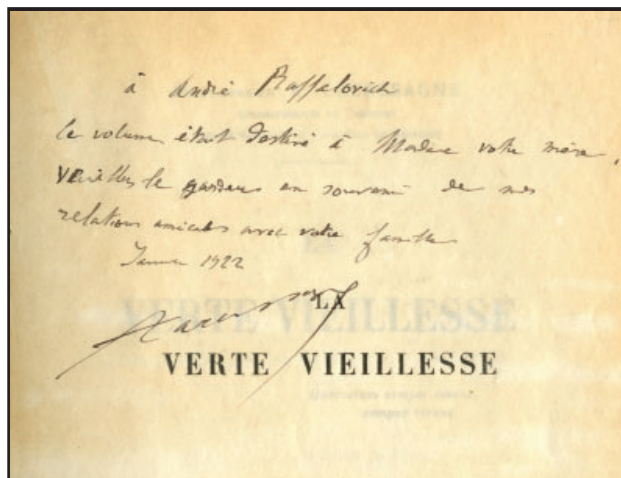 à André Raffalovich
Ce volume était destiné à Madame votre mère,
veuillez le garder en souvenir de mes
relations amicales avec votre famille
Janvier 1922
LA
VERTE VIEILLESSE